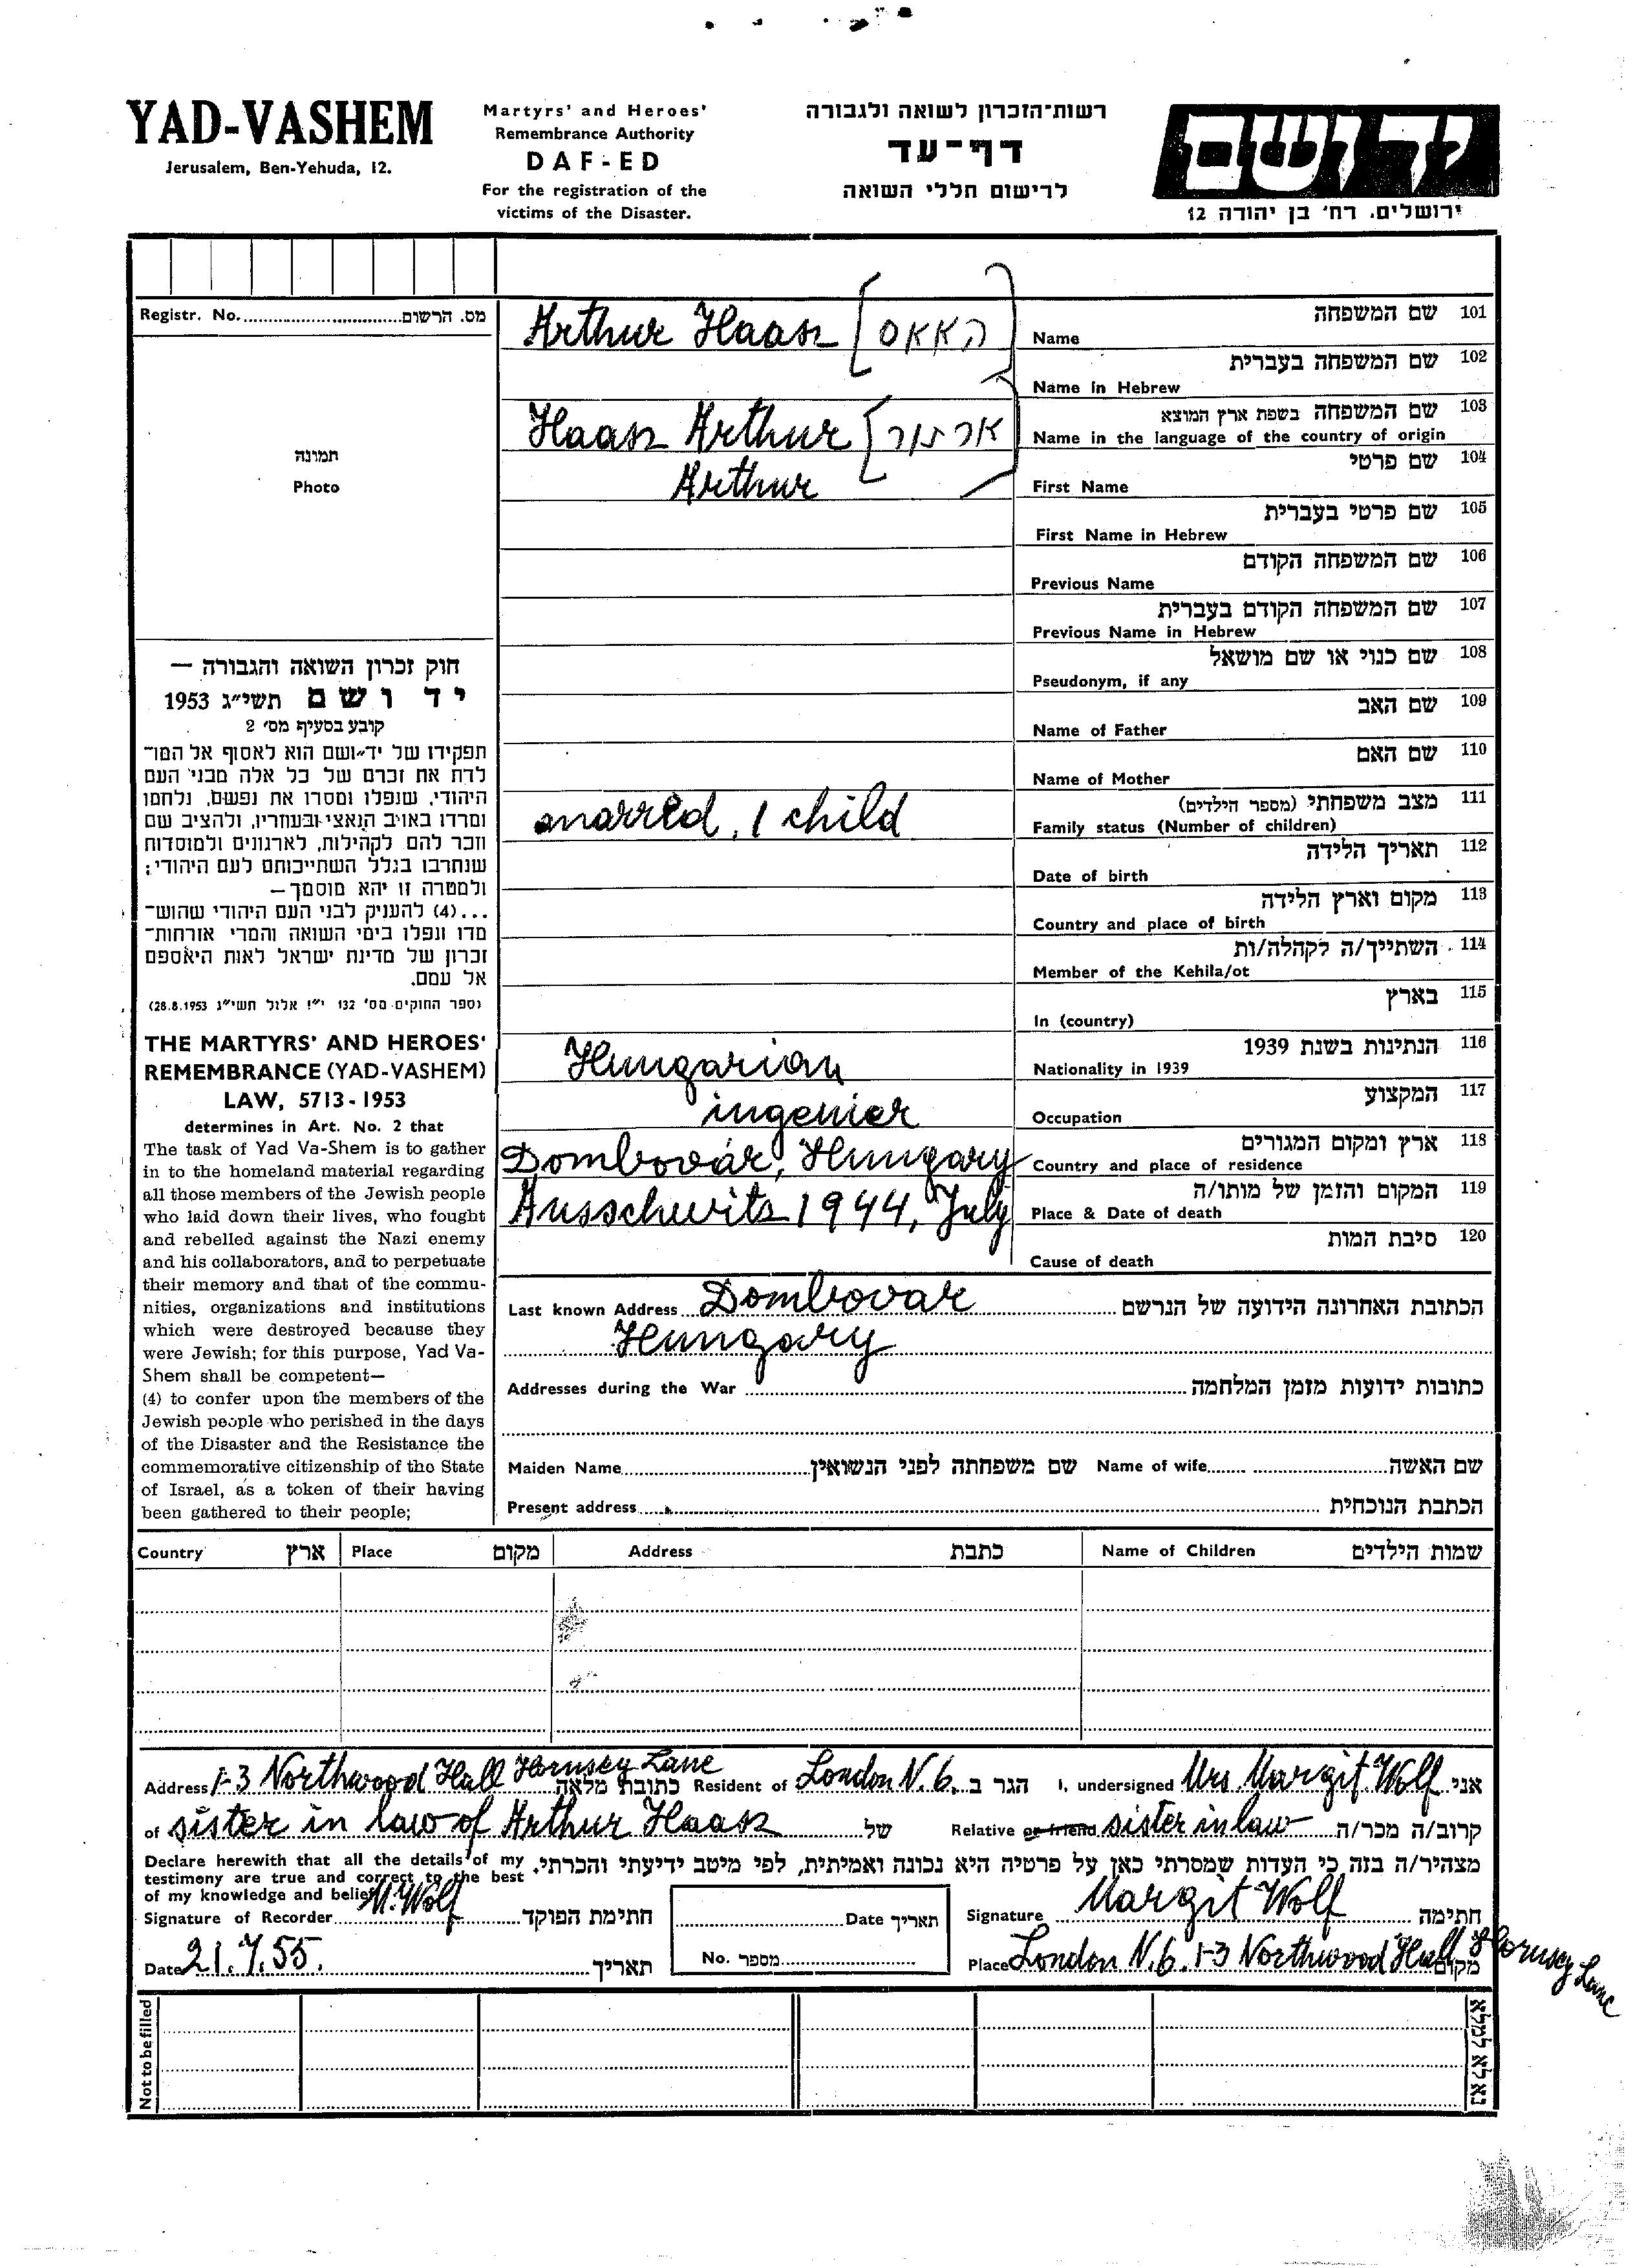 YAD-VASHEM
Jerusalem, Ben-Yehuda, 12.
Martyrs' and Heroes'
Remembrance Authority
DAF-ED
For the registration of the
victims of the Disaster.
רשות־הזכרון לשואה ולגבורה
דף־עד
לרישום חללי השואה
יד ושם
ירושלים. רח' בן יהודה 12
Registr. No. מס. הרשום
תמונה
Photo
חוק זכרון השואה והגבורה —
יד ושם תשי״ג 1953
קובע בסעיף מס' 2
תפקידו של יד־ושם הוא לאסוף אל המו־
לדת את זכרם של כל אלה מבני העם
היהודי, שנפלו ומסרו את נפשם, נלחמו
ומרדו באויב הנאצי ובעוזריו, ולהציב שם
וזכר להם לקהילות, לארגונים ולמוסדות
שנחרבו בגלל השתייכותם לעם היהודי;
ולמטרה זו יהא מוסמך—
...(4) להעניק לבני העם היהודי שהוש־
מדו ונפלו בימי השואה והמרי אזרחות־
זכרון של מדינת ישראל לאות היאספם
אל עמם.
(ספר החוקים מס' 132 י״ז אלול תשי״ג 28.8.1953)
THE MARTYRS' AND HEROES'
REMEMBRANCE (YAD-VASHEM)
LAW, 5713-1953
determines in Art. No. 2 that
The task of Yad Va-Shem is to gather
in to the homeland material regarding
all those members of the Jewish people
who laid down their lives, who fought
and rebelled against the Nazi enemy
and his collaborators, and to perpetuate
their memory and that of the commu-
nities, organizations and institutions
which were destroyed because they
were Jewish; for this purpose, Yad Va-
Shem shall be competent—
(4) to confer upon the members of the
Jewish people who perished in the days
of the Disaster and the Resistance the
commemorative citizenship of the State
of Israel, as a token of their having
been gathered to their people;
Arthur Haasz [האאס] Name שם המשפחה 101
Name in Hebrew שם המשפחה בעברית 102
Haasz Arthur [ארתור] Name in the language of the country of origin שם המשפחה בשפת ארץ המוצא 103
Arthur First Name שם פרטי 104
First Name in Hebrew שם פרטי בעברית 105
Previous Name שם המשפחה הקודם 106
Previous Name in Hebrew שם המשפחה הקודם בעברית 107
Pseudonym, if any שם כנוי או שם מושאל 108
Name of Father שם האב 109
Name of Mother שם האם 110
marred, 1 child Family status (Number of children) מצב משפחתי (מספר הילדים) 111
Date of birth תאריך הלידה 112
Country and place of birth מקום וארץ הלידה 113
Member of the Kehila/ot השתייך/ה לקהלה/ות 114
In (country) בארץ 115
Hungarian Nationality in 1939 הנתינות בשנת 1939 116
ingenier Occupation המקצוע 117
Dombovár, Hungary Country and place of residence ארץ ומקום המגורים 118
Ausschwitz 1944, July Place & Date of death המקום והזמן של מותו/ה 119
Cause of death סיבת המות 120
Last known Address Dombovar הכתובת האחרונה הידועה של הנרשם
Hungary
Addresses during the War כתובות ידועות מזמן המלחמה
Maiden Name שם משפחתה לפני הנשואין Name of wife שם האשה
Present address הכתבת הנוכחית
Country ארץ Place מקום Address כתבת Name of Children שמות הילדים
Address 1-3 Northwood Hall Hornsey Lane כתובת מלאה Resident of London N. 6. הגר ב I, undersigned Mrs Margit Wolf אני
of sister in law of Arthur Haasz של Relative or friend sister in law קרוב/ה מכר/ה
Declare herewith that all the details of my
testimony are true and correct to the best
of my knowledge and belief
מצהיר/ה בזה כי העדות שמסרתי כאן על פרטיה היא נכונה ואמיתית, לפי מיטב ידיעתי והכרתי.
Signature of Recorder M. Wolf חתימת הפוקד Date תאריך Signature Margit Wolf חתימה
Date 21.7.55. תאריך No. מספר Place London N.6. 1-3 Northwood Hall Hornsey Lane מקום
Not to be filled
נא לא למלא